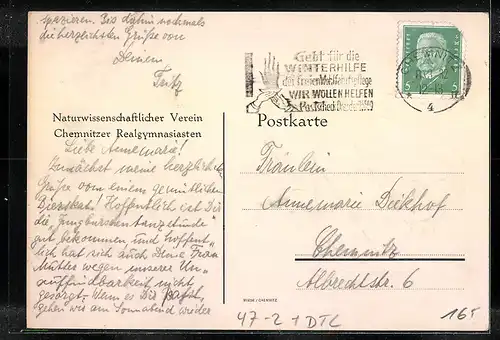 spazieren. Bis dahin nochmals
die herzlichsten Grüße von
Deinem
Fritz
Gebt für die
WINTERHILFE
der freien Wohlfahrtspflege
WIR WOLLEN HELFEN
Postscheck
CHEMNITZ
5 5
4
Naturwissenschaftlicher Verein
Chemnitzer Realgymnasiasten
Postkarte
Liebe Annemarie!
Zunächst meine herzlichsten
Grüße vom einem gemütlichen
Bierskat! Hoffentlich ist Dir
die „Jungburschentanzstunde"
gut bekommen und hoffent-
lich hat sich auch Deine Frau
Mutter wegen unserer Un-
auffindbarkeit nicht
gesorgt. Wenn es Dir paßt,
gehen wir am Sonnabend wieder
Fräulein
Annemarie Dickhof
Chemnitz
Albrechtstr. 6
47-2 + DTL
165